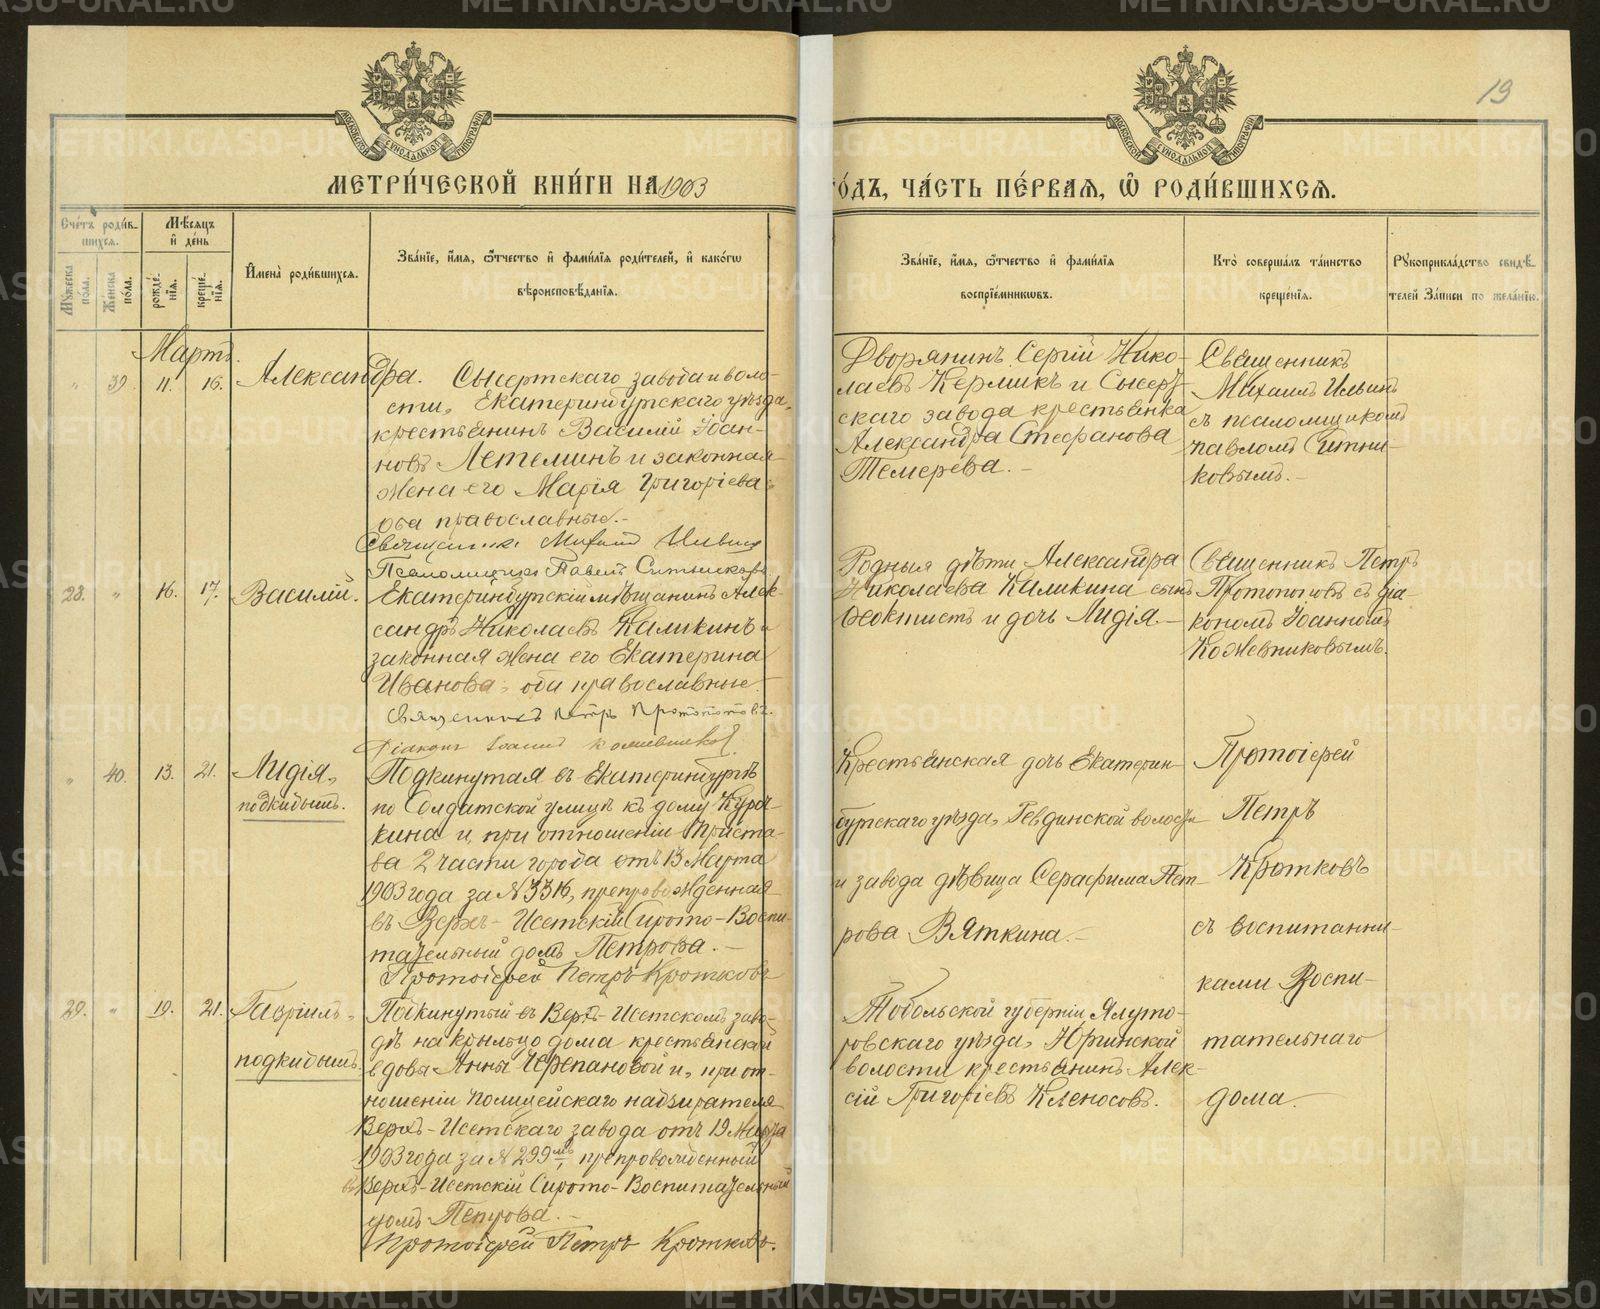 19
МОСКОВСКОЙ СѴНОДАЛЬНОЙ ТИПОГРАФІИ
МОСКОВСКОЙ СѴНОДАЛЬНОЙ ТИПОГРАФІИ
МЕТРИ́ЧЕСКОЙ КНИ́ГИ НА 1903
ГО́ДЪ, ЧА́СТЬ ПЕ́РВАѦ, Ѡ РОДИ́ВШИХСѦ.
Сче́тъ роди́в-
шихсѧ.
Мꙋжеска по́ла.
Же́нска по́ла.
Мѣ́сѧцъ
и҆ де́нь
рожде́нїѧ.
креще́нїѧ.
И҆мена̀ роди́вшихсѧ.
Зва́нїе, и҆́мѧ, ѻ҆́тчество и҆ фами́лїѧ роди́телей, и҆ како́гѡ
вѣроисповѣ́данїѧ.
Зва́нїе, и҆́мѧ, ѻ҆́тчество и҆ фами́лїѧ
воспрїе́мникѡвъ.
Кто̀ соверша́лъ та́инство
креще́нїѧ.
Рꙋкоприкла́дство свидѣ́-
телей За́писи по жела́нїю.
Мартъ.
" 39. 11. 16. Александра.
Сысертскаго завода и воло-
сти, Екатеринбургскаго уѣзда,
крестьянинъ Василій Іоан-
новъ Летеминъ и законная
жена его Марія Григоріева;
оба православные.-
Священникъ Михаилъ Ильинъ
Псаломщикъ Павелъ Ситниковъ
Дворянинъ Сергій Нико-
лаевъ Кермикъ и Сысерт-
скаго завода крестьянка
Александра Стефанова
Темерева.-
Священникъ
Михаилъ Ильинъ
съ псаломщикомъ
Павломъ Ситни-
ковымъ.-
28. " 16. 17. Василій.
Екатеринбургскій мѣщанинъ Алек-
сандръ Николаевъ Каликинъ и
законная жена его Екатерина
Иванова, оба православные.
Священникъ Петръ Протопоповъ.
Діаконъ Іоаннъ Кожевниковъ.
Родныя дѣти Александра
Николаева Каликина сынъ
Феоктистъ и дочь Лидія.-
Священникъ Петръ
Протопоповъ съ діа-
кономъ Іоанномъ
Кожевниковымъ.
" 40. 13. 21. Лидія,
подкидышъ.
Подкинутая въ Екатеринбургѣ
по Солдатской улицѣ къ дому Куроч-
кина и, при отношеніи Приста-
ва 2 части города отъ 13 Марта
1903 года за № 3316, препровожденная
въ Верхъ-Исетскій Сирото-Воспи-
тательный домъ Петрова.-
Протоіерей Петръ Кротковъ
Крестьянская дочь Екатерин-
бургскаго уѣзда, Ревдинской волости
и завода дѣвица Серафима Пет-
рова Вяткина.-
Протоіерей
Петръ
Кротковъ
съ воспитанни-
ками Воспи-
тательнаго
дома.
29. " 19. 21. Гавріилъ,
подкидышъ.
Подкинутый въ Верхъ-Исетскомъ заво-
дѣ на крыльцо дома крестьянской
вдовы Анны Черепановой и, при от-
ношеніи Полицейскаго надзирателя
Верхъ-Исетскаго завода отъ 19 Марта
1903 года за № 299, препровожденный
въ Верхъ-Исетскій Сирото-Воспитательный
домъ Петрова.-
Протоіерей Петръ Кротковъ.
Тобольской губерніи Ялуто-
ровскаго уѣзда, Юргинской
волости крестьянинъ Алек-
сій Григоріевъ Клепосовъ.
METRIKI.GASO-URAL.RU